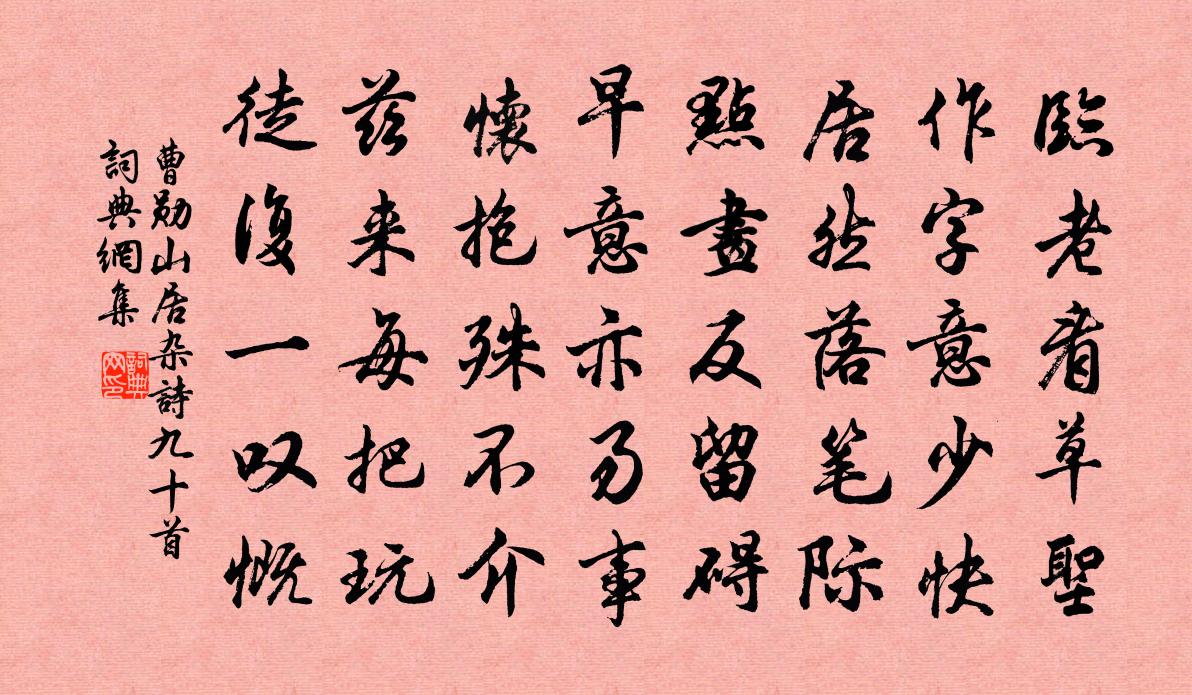 臨老看草聖
作字意少快
居然落笔际
點畫反留碍
早意亦易事
懷抱殊不介
兹来每把玩
徒復一叹慨
曹勋山居杂詩九十首
詞典網集
詞典网印